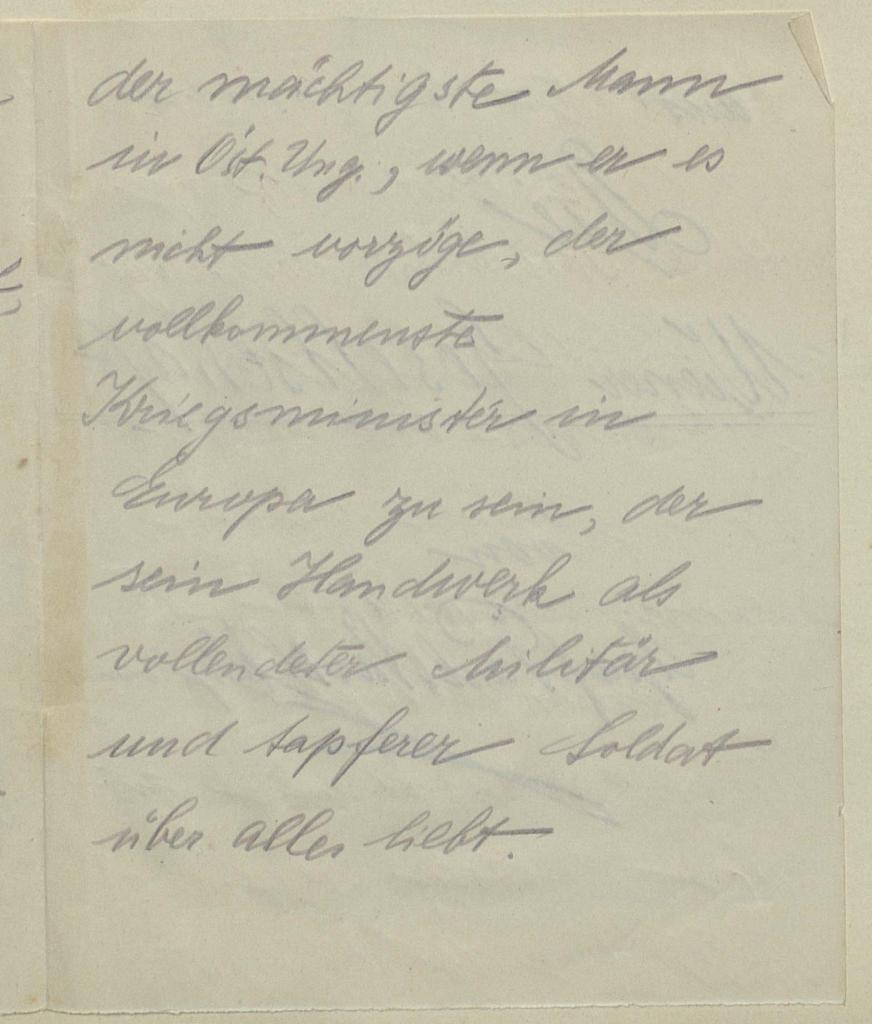 der mächtigste Mann
in Öst. Ung., wenn er es
nicht vorzöge, der
vollkommenste
Kriegsminister in
Europa zu sein, der
sein Handwerk als
vollendeter Militär
und tapferer Soldat
über alles liebt.